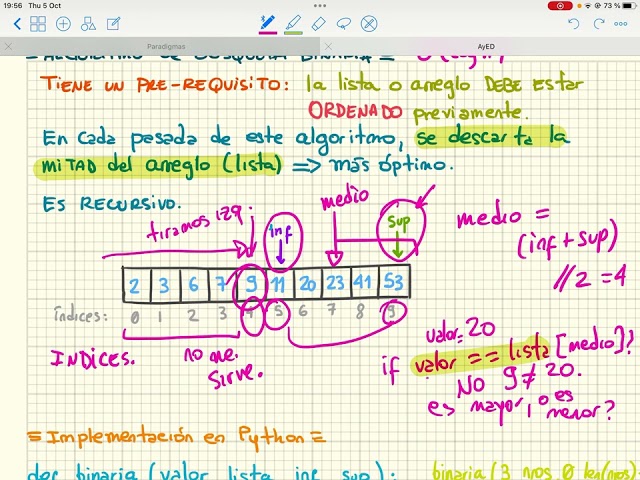 19:56 Thu 5 Oct
73 %
Paradigmas
AyED
TIENE UN PRE-REQUISITO: la lista o arreglo DEBE ESTAR
ORDENADO previamente.
En cada pasada de este algoritmo, se descarta la
MITAD del arreglo (lista) => más óptimo.
ES RECURSIVO.
tiramos izq
inf
medio
sup
medio =
(inf + sup)
//2 = 4
2 3 6 7 9 11 20 23 41 53
índices: 0 1 2 3 4 5 6 7 8 9
INDICES.
no me
sirve.
valor = 20
if valor == lista [medio]?
NO 9 ≠ 20.
es mayor, o es
menor?
= Implementación en Python =
binaria (valor lista inf sup):
binaria (3 nros, 0